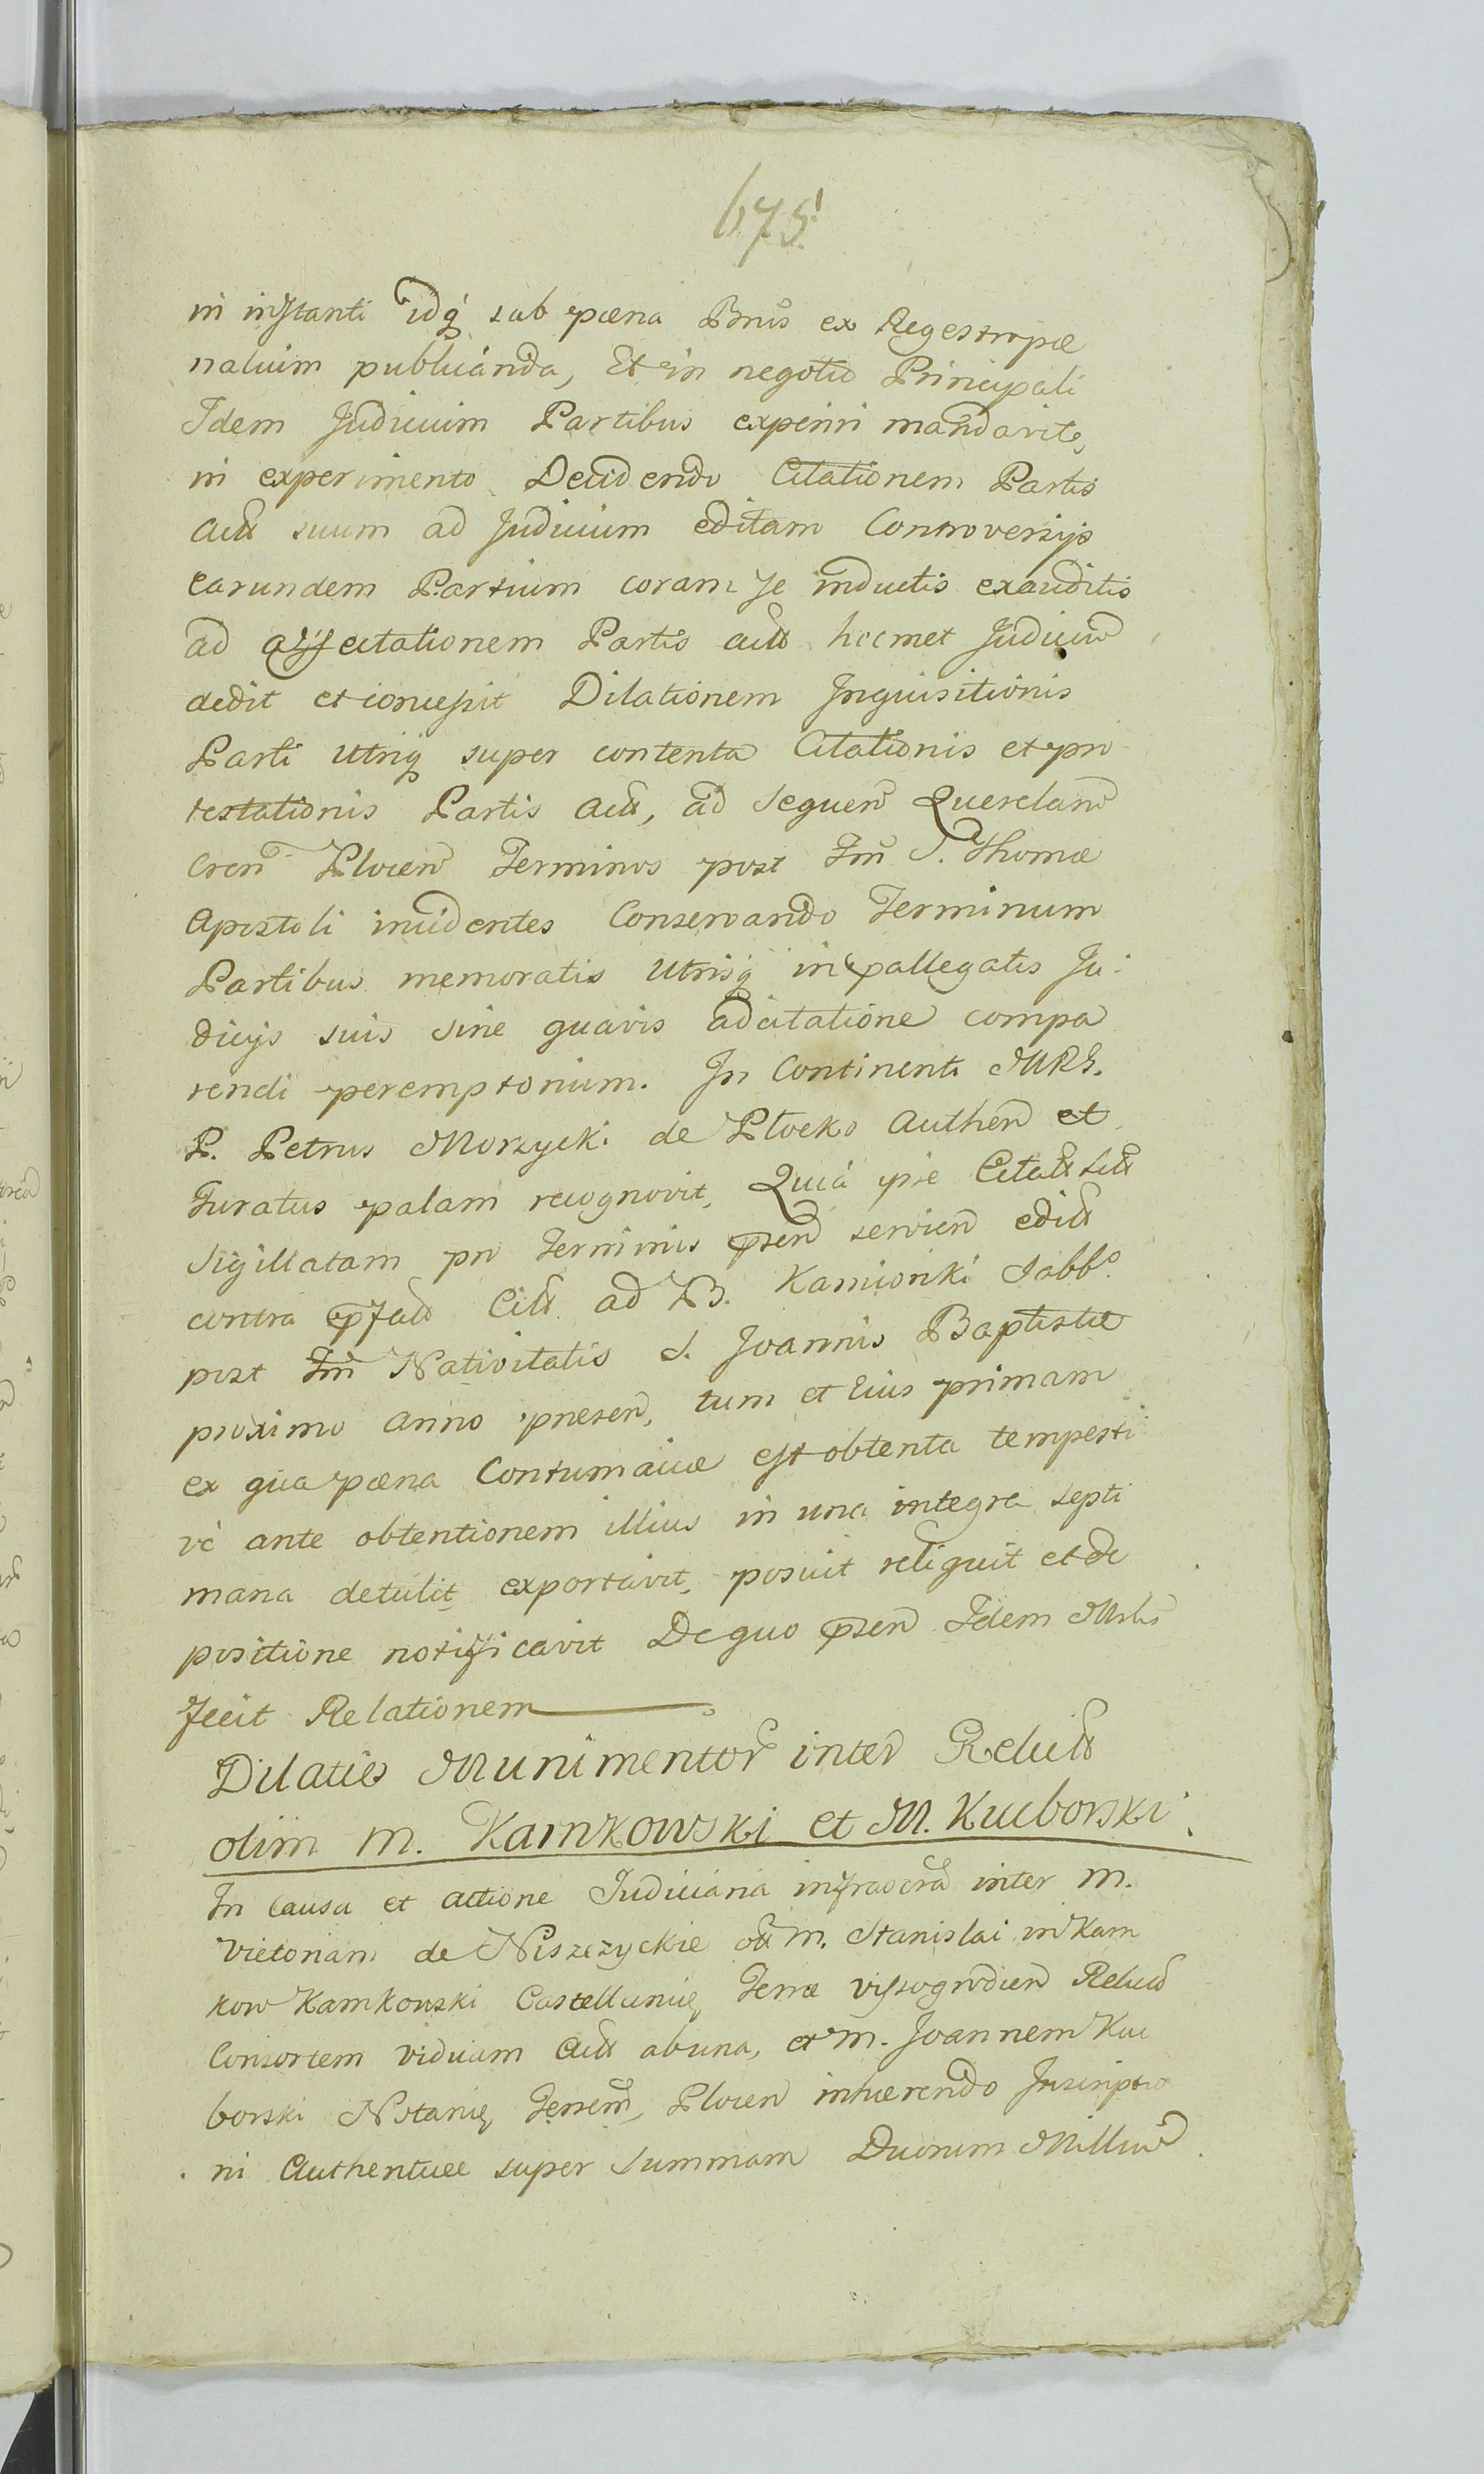 675
in instanti idq̃ sub pæna Bnis ex Regestro pæ
nalium publicanda, Et in negotio Principali
Idem Judicium Partibus experiri mandavit,
in experimento Decidendo Citationem Partis
actã suum ad Judicium editam Controversijs
earundem Partium coram se inductis exauditis
ad affectationem Partis actã hocmet Judiciũ
dedit et concessit Dilationem Inquisitionis
Parti utriq̃ super contenta Citationis et pro
testationis Partis actã, ad sequeñ Querelarũ
Cren Ploceñ Terminos post Fm̃ S. Thomæ
Apostoli incidentes Conservando Terminum
Partibus memoratis utrisq̃ in pallegatis Ju:
dicijs suis sine quavis adcitatione compa
rendi peremptorium. In Continenti MRS.
P. Petrus Morzycki de Płocko Autheñ et
Juratus palam recognovit, Quia ipse Citatã Litã
Sigillatam pro Terminis p̃señ servieñ editã
contra p̃fatã Citã ad B. Kamionki Sabbo.
post Fm̃ Nativitatis S. Joannis Baptistæ
proximo anno præseñ, tum et Eius primam
ex qua pæna Contumaciæ est obtenta tempesti
ve ante obtentionem illius in una integra septi
mana detulit, exportavit, posuit reliquit et de
positione notificavit De quo p̃señ Idem Mrlis
fecit Relationem
Dilatio Munimentor inter Relictã
olim M. Kamkowski et M. Kucborski:
In Causa et actione Judiciaria infrascrã inter M.
Victoriam de Niszczyckie otã M. Stanislai in Kam
kow Kamkowski Castellanię Terræ vissogrodieñ Relictã
Consortem viduam Actã ab una, et M. Joannem Kuc
borski Notarię Terrem, Ploceñ inhærendo Inscriptio
ni Authenticæ super summam Duorum Milliũ